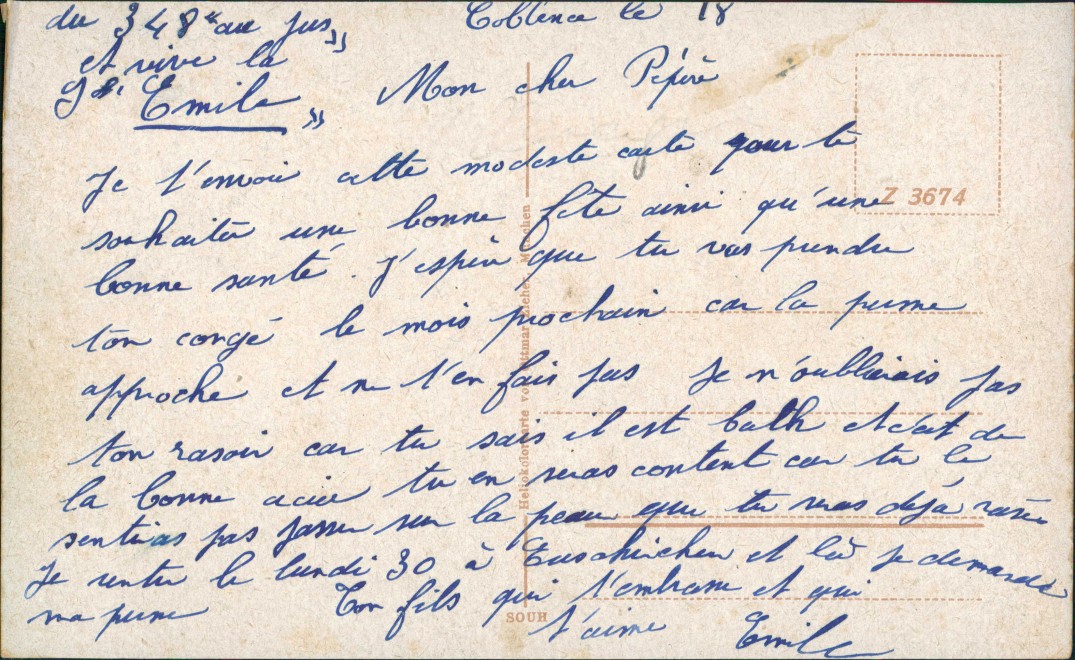 Coblence le 18
du 348 "au jus"
et vive la
Emile "
Mon cher Pépère
Je t'envoie cette modeste carte pour te
souhaiter une bonne fete ainsi qu'une
bonne santé. J'espère que tu vas prendre
ton congé le mois prochain car la perme
approche et ne t'en fais pas Je n'oublierais pas
ton rasoir car tu sais il est bath et c'est de
la bonne acier tu en seras content car tu le
sentiras pas passer sur la peau que tu seras déjà rasé
Je rentre le lundi 30 à Euschirchen et là je demande
ma perme Ton fils qui t'embrasse et qui
t'aime Emile
Z 3674
Heliokolorkarte von Ottmar Zieher, München
SOUH